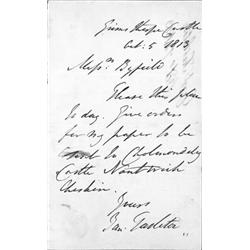 Grimsthorpe Castle
Oct: 5 1813
Mess.rs Byfield
Please this place
to day. Give orders
for my paper to be
send to Cholmondeley
Castle Nantwich
Cheshire.
Yours
Ban. Tarleton